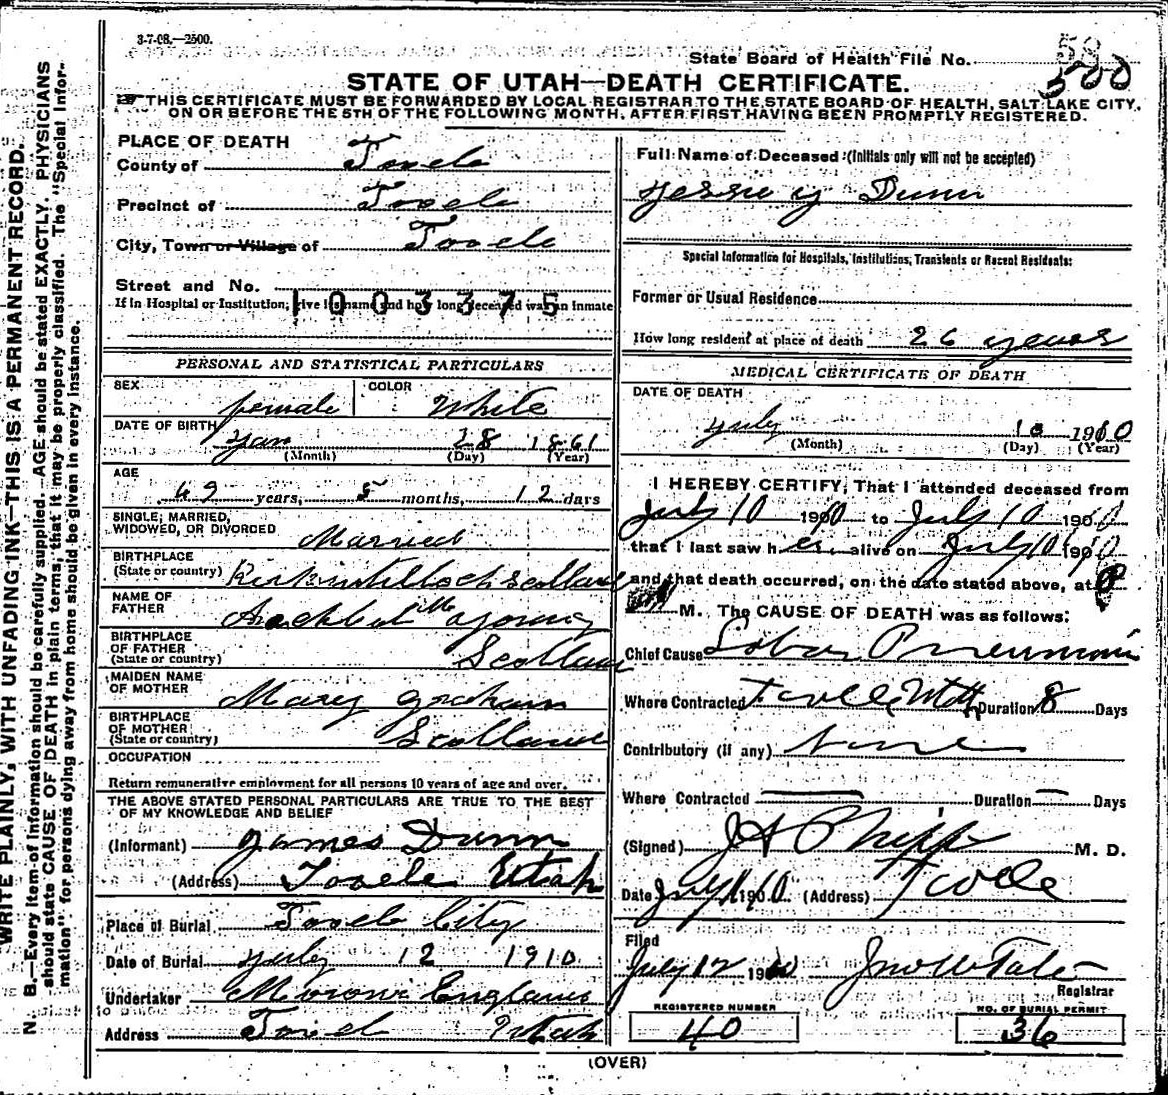 3-7-08.—2500.
State Board of Health File No.
500
STATE OF UTAH—DEATH CERTIFICATE.
THIS CERTIFICATE MUST BE FORWARDED BY LOCAL REGISTRAR TO THE STATE BOARD OF HEALTH, SALT LAKE CITY,
ON OR BEFORE THE 5TH OF THE FOLLOWING MONTH, AFTER FIRST HAVING BEEN PROMPTLY REGISTERED.
WRITE PLAINLY, WITH UNFADING INK—THIS IS A PERMANENT RECORD.
N. B.—Every item of information should be carefully supplied. AGE should be stated EXACTLY. PHYSICIANS
should state CAUSE OF DEATH in plain terms, that it may be properly classified. The "Special Infor-
mation" for persons dying away from home should be given in every instance.
PLACE OF DEATH
County of Tooele
Precinct of Tooele
City, Town or Village of Tooele
Street and No.
If in Hospital or Institution, give its name and how long deceased was an inmate
1003375
PERSONAL AND STATISTICAL PARTICULARS
SEX female COLOR White
DATE OF BIRTH Jan 28 1861
(Month) (Day) (Year)
AGE
49 years, 5 months, 12 days
SINGLE, MARRIED,
WIDOWED, OR DIVORCED Married
BIRTHPLACE
(State or country) Kirkintilloch Scotland
NAME OF
FATHER Young
BIRTHPLACE
OF FATHER
(State or country) Scotland
MAIDEN NAME
OF MOTHER Mary Graham
BIRTHPLACE
OF MOTHER
(State or country) Scotland
OCCUPATION
Return remunerative employment for all persons 10 years of age and over.
THE ABOVE STATED PERSONAL PARTICULARS ARE TRUE TO THE BEST
OF MY KNOWLEDGE AND BELIEF
(Informant) James Dunn
(Address) Tooele Utah
Place of Burial Tooele City
Date of Burial July 12 1910
Undertaker Moroni England
Address Tooele Utah
Full Name of Deceased (Initials only will not be accepted)
Jessie Y Dunn
Special Information for Hospitals, Institutions, Transients or Recent Residents:
Former or Usual Residence
How long resident at place of death 26 years
MEDICAL CERTIFICATE OF DEATH
DATE OF DEATH
July 10 1910
(Month) (Day) (Year)
I HEREBY CERTIFY, That I attended deceased from
July 10 1910 to July 10 1910
that I last saw her alive on July 10 1910
and that death occurred, on the date stated above, at
M. The CAUSE OF DEATH was as follows:
Chief Cause Lobar Pneumonia
Where Contracted Tooele Utah Duration 8 Days
Contributory (if any) None
Where Contracted Duration Days
(Signed) M. D.
Date July 1910 (Address) Tooele
Filed
July 12 1910 Jno W Tate
Registrar
REGISTERED NUMBER
40
NO. OF BURIAL PERMIT
36
(OVER)